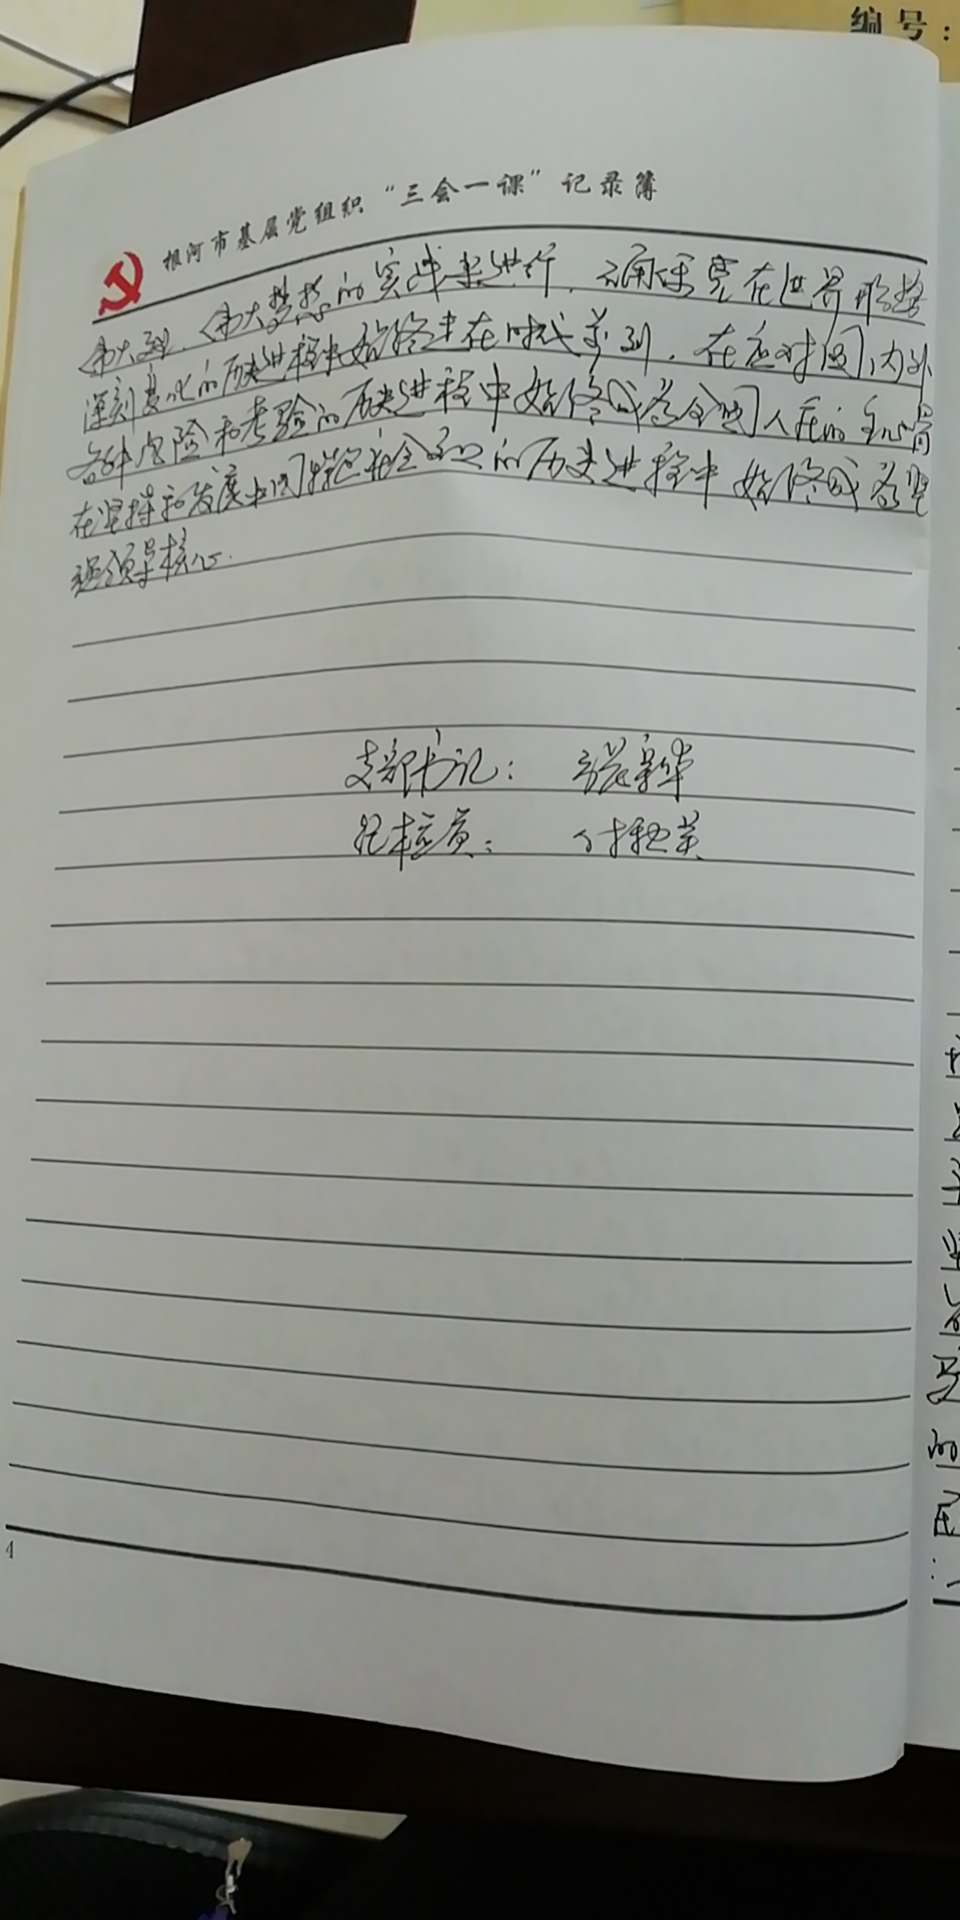 编号：
根河市基层党组织“三会一课”记录簿
伟大梦想的实践来进行，确保党在世界形势
深刻变化的历史进程中始终走在时代前列，在应对国内外
各种风险和考验的历史进程中始终成为全国人民的主心骨
在坚持和发展中国特色社会主义的历史进程中始终成为坚
强领导核心.
支部书记： 张新华
记录员： 付艳英
4